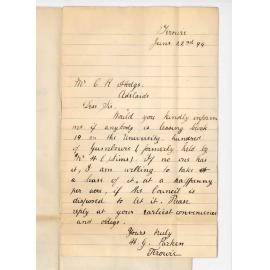 Terowie
June 22nd 94
Mr. C. R. Hodge
Adelaide
Dear Sir.
Would you kindly inform
me if anybody is leasing block
19 on the University hundred
of Gumbowie (formerly held by
Mr H Sims). If no one has
it, I am willing to take
a lease of it, at a halfpenny
per acre, if the Council is
disposed to let it. Please
reply at your earliest convenience
and oblige.
Yours truly
H. G. Parken
Terowie